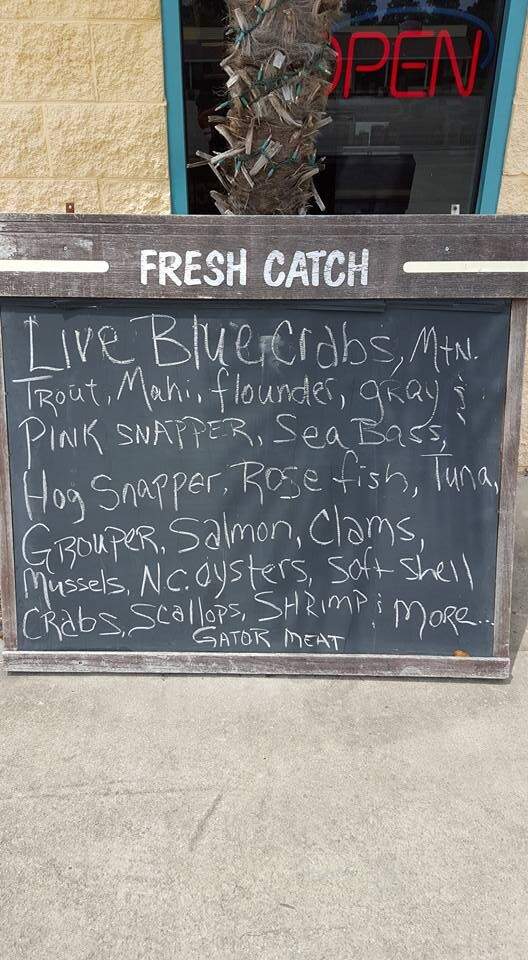 OPEN
FRESH CATCH
Live Blue Crabs, Mtn.
Trout, Mahi, flounder, gray &
PINK SNAPPER, Sea Bass,
Hog Snapper, Rose fish, Tuna,
GROUPER, Salmon, Clams,
Mussels, N.C. oysters, Soft shell
CRabs, Scallops, SHRIMP & MORE...
GATOR MEAT